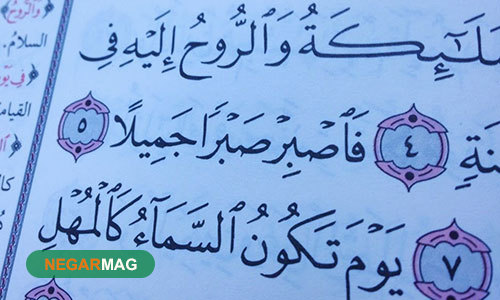 لَـٰٓئِكَةُ وَٱلرُّوحُ إِلَيْهِ فِى
نَةٍ ٤ فَٱصْبِرْ صَبْرًا جَمِيلًا ٥
٧ يَوْمَ تَكُونُ ٱلسَّمَآءُ كَٱلْمُهْلِ
والروح﴾
السلام.
﴿في يو
القيام
كا
NEGARMAG